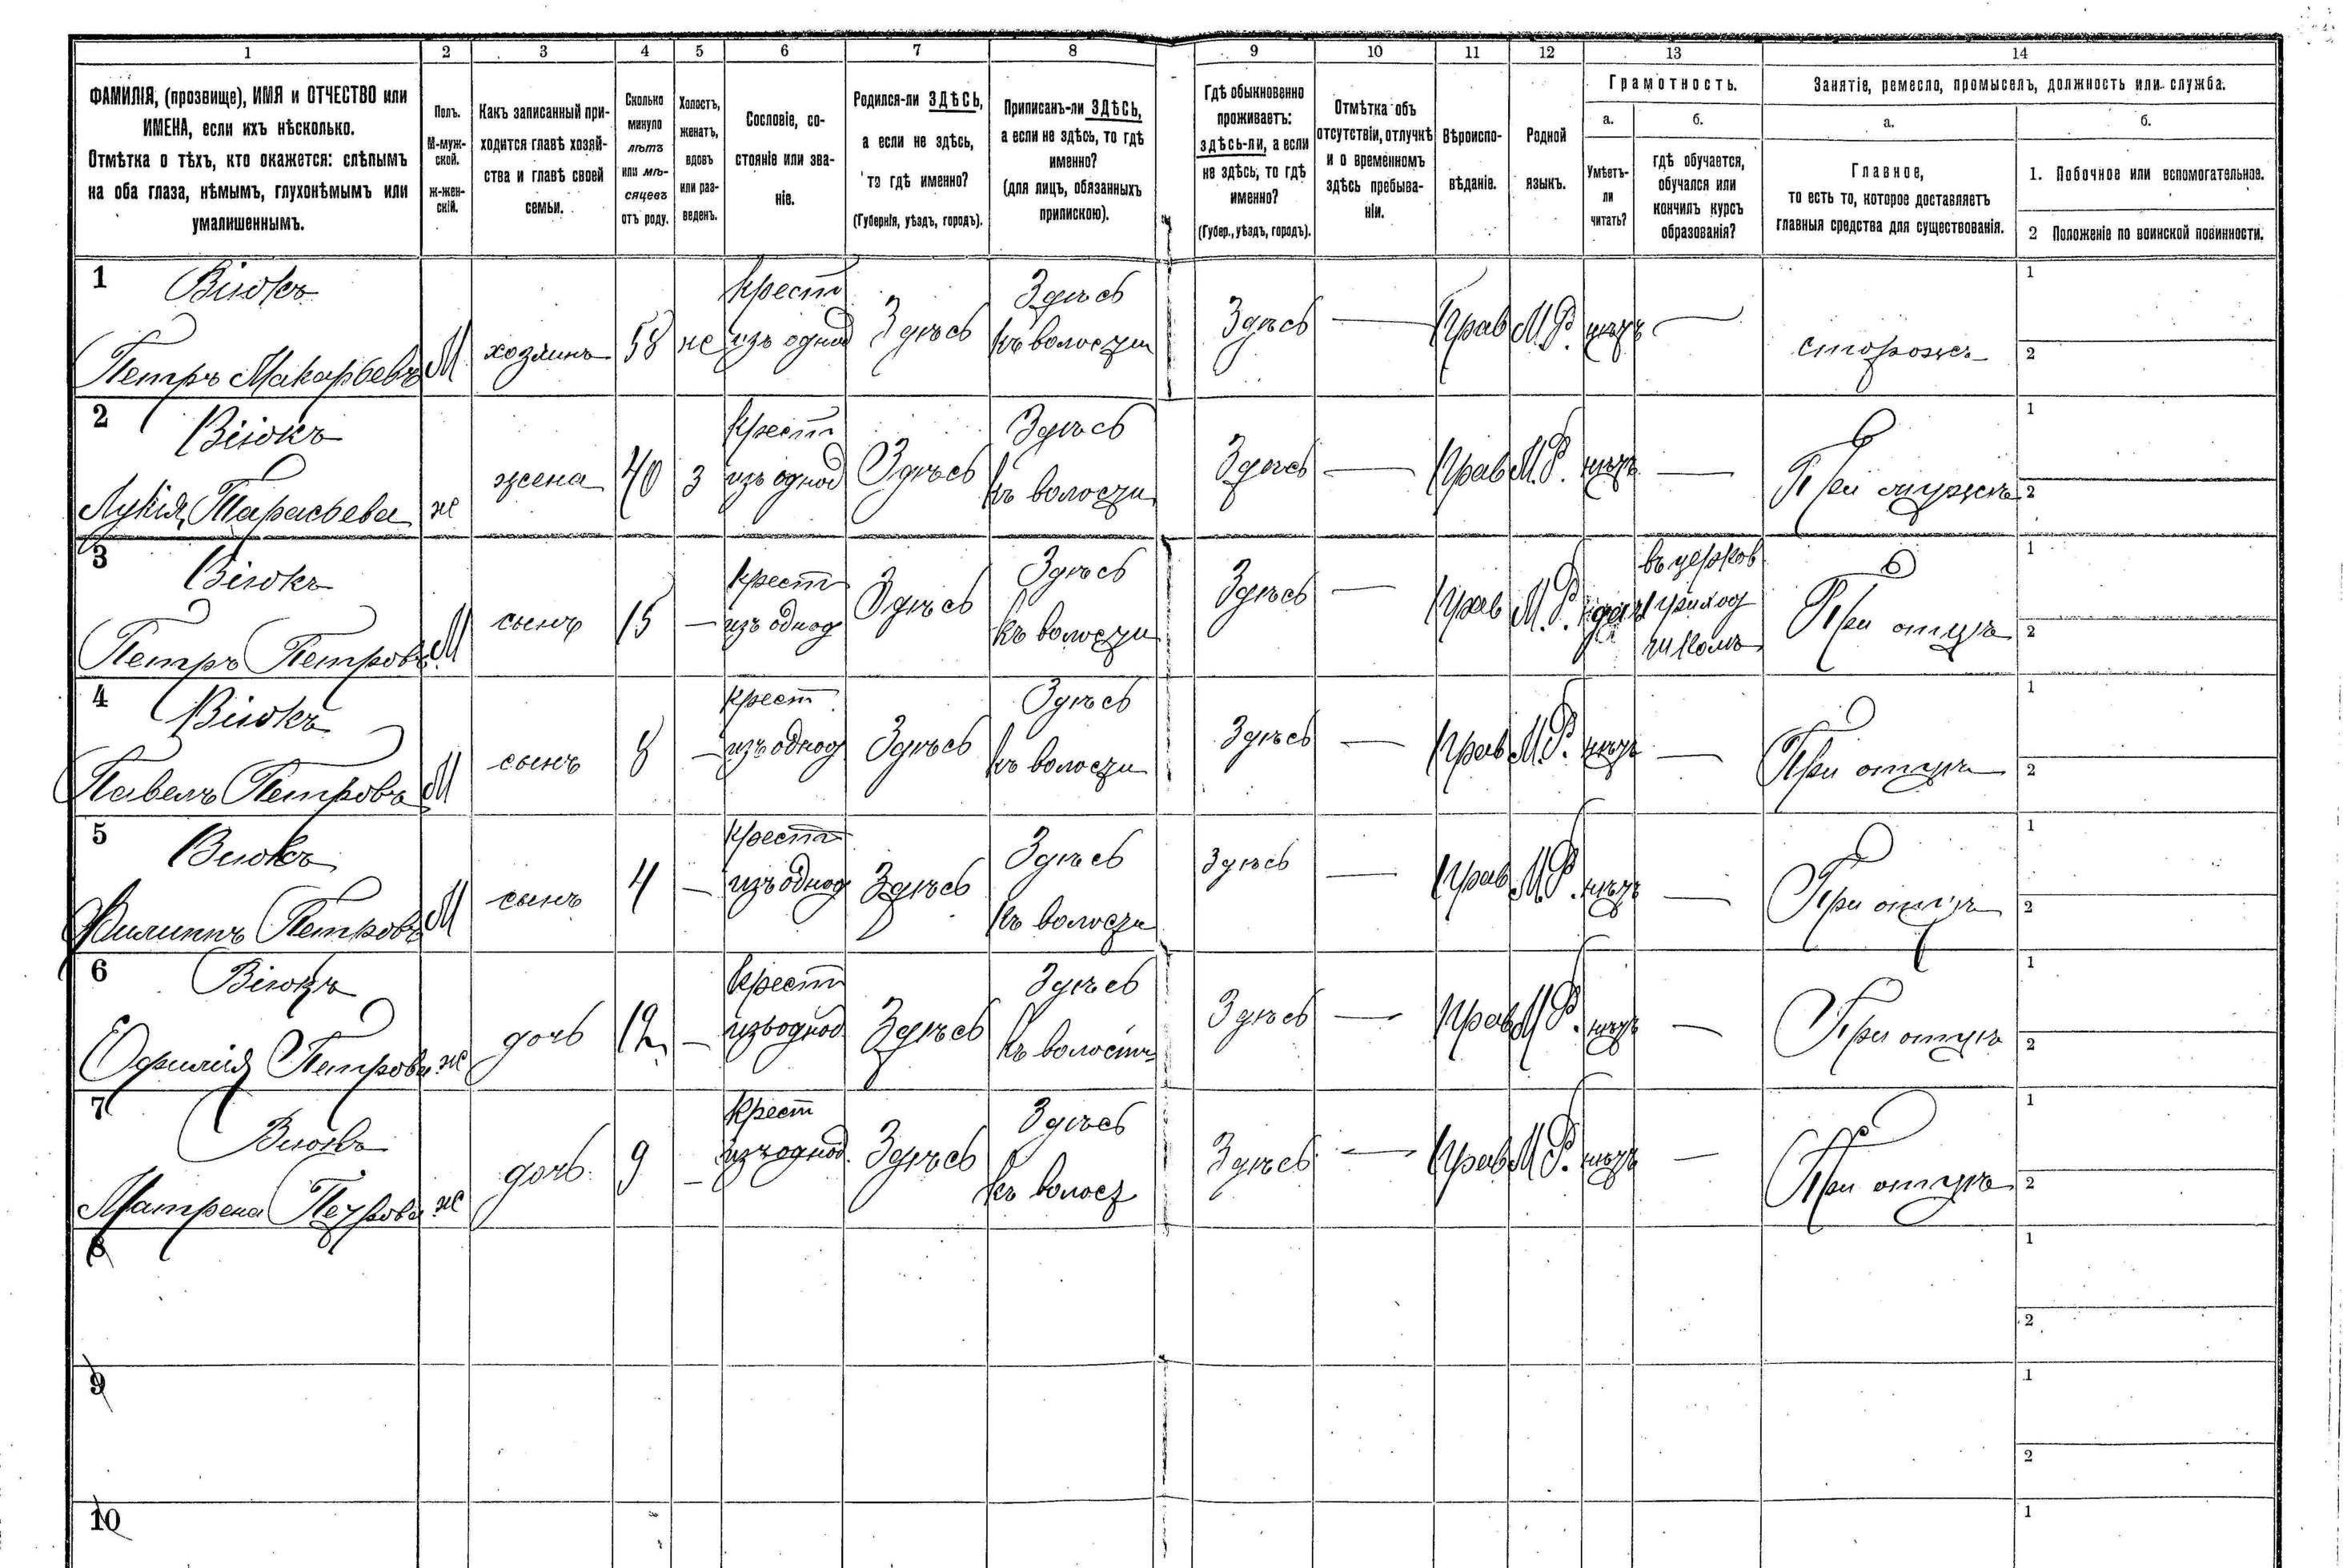 1 2 3 4 5 6 7 8 9 10 11 12 13 14
ФАМИЛІЯ, (прозвище), ИМЯ и ОТЧЕСТВО или
ИМЕНА, если ихъ нѣсколько.
Отмѣтка о тѣхъ, кто окажется: слѣпымъ
на оба глаза, нѣмымъ, глухонѣмымъ или
умалишеннымъ.
Полъ.
М-муж-
ской.
ж-жен-
скій.
Какъ записанный при-
ходится главѣ хозяй-
ства и главѣ своей
семьи.
Сколько
минуло
лѣтъ
или мѣ-
сяцевъ
отъ роду.
Холостъ,
женатъ,
вдовъ
или раз-
веденъ.
Сословіе, со-
стояніе или зва-
ніе.
Родился-ли ЗДѢСЬ,
а если не здѣсь,
то гдѣ именно?
(Губернія, уѣздъ, городъ).
Приписанъ-ли ЗДѢСЬ,
а если не здѣсь, то гдѣ
именно?
(для лицъ, обязанныхъ
припискою).
Гдѣ обыкновенно
проживаетъ:
здѣсь-ли, а если
не здѣсь, то гдѣ
именно?
(Губер., уѣздъ, городъ).
Отмѣтка объ
отсутствіи, отлучкѣ
и о временномъ
здѣсь пребыва-
ніи.
Вѣроиспо-
вѣданіе.
Родной
языкъ.
Грамотность.
а.
Умѣетъ-
ли
читать?
б.
гдѣ обучается,
обучался или
кончилъ курсъ
образованія?
Занятіе, ремесло, промыселъ, должность или служба.
а.
Главное,
то есть то, которое доставляетъ
главныя средства для существованія.
б.
1. Побочное или вспомогательное.
2 Положеніе по воинской повинности.
1 Вілокъ
Петръ Макарьевъ
М
хозяинъ
58
же
крест
изъ однод
Здѣсь
Здѣсь
къ волости
Здѣсь
—
Прав
М.Р.
нѣтъ
—
сторожъ
1
2
2 Вілокъ
Лукія Тарасьева
ж
жена
40
З
крест
изъ однод
Здѣсь
Здѣсь
къ волости
Здѣсь
—
Прав
М.Р.
нѣтъ
—
При мужѣ
1
2
3 Вілокъ
Петръ Петровъ
М
сынъ
15
—
крест
изъ однод
Здѣсь
Здѣсь
къ волости
Здѣсь
—
Прав
М.Р.
да
въ церков
приход
школѣ
При отцѣ
1
2
4 Вілокъ
Павелъ Петровъ
М
сынъ
8
—
крест
изъ однод
Здѣсь
Здѣсь
къ волости
Здѣсь
—
Прав
М.Р.
нѣтъ
—
При отцѣ
1
2
5 Вілокъ
Филиппъ Петровъ
М
сынъ
4
—
крест
изъ однод
Здѣсь
Здѣсь
къ волости
Здѣсь
—
Прав
М.Р.
нѣтъ
—
При отцѣ
1
2
6 Вілокъ
Ефимія Петрова
ж
дочь
12
—
крест
изъ однод
Здѣсь
Здѣсь
къ волости
Здѣсь
—
Прав
М.Р.
нѣтъ
—
При отцѣ
1
2
7 Вілокъ
Матрена Петрова
ж
дочь
9
—
крест
изъ однод
Здѣсь
Здѣсь
къ волост
Здѣсь
—
Прав
М.Р.
нѣтъ
—
При отцѣ
1
2
8
1
2
9
1
2
10
1